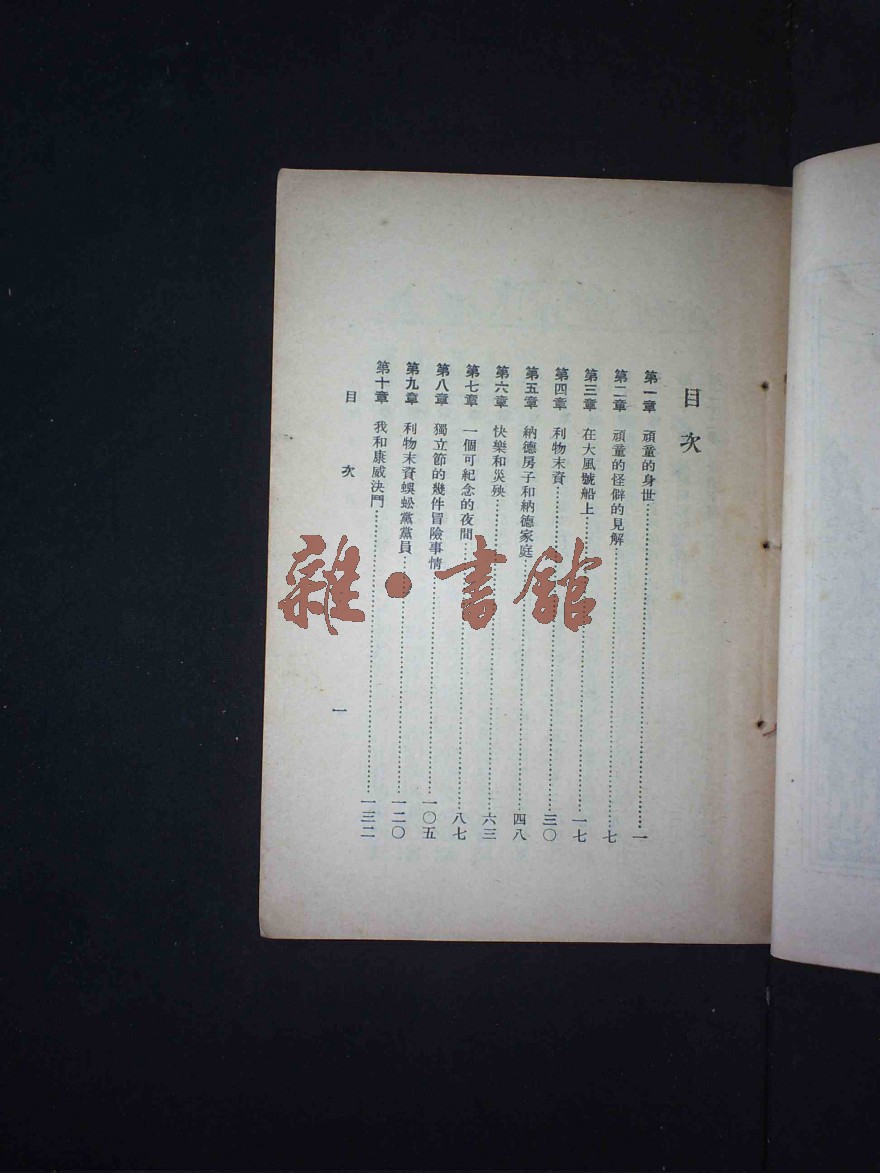 目次
第一章　頑童的身世……一
第二章　頑童的怪僻的見解……七
第三章　在大風號船上……一七
第四章　利物末資……三〇
第五章　納德房子和納德家庭……四八
第六章　快樂和災殃……六三
第七章　一個可紀念的夜間……八七
第八章　獨立節的幾件冒險事情……一〇五
第九章　利物末資蜈蚣黨黨員……一二〇
第十章　我和康威決鬥……一三二
目次
一
雜·書館